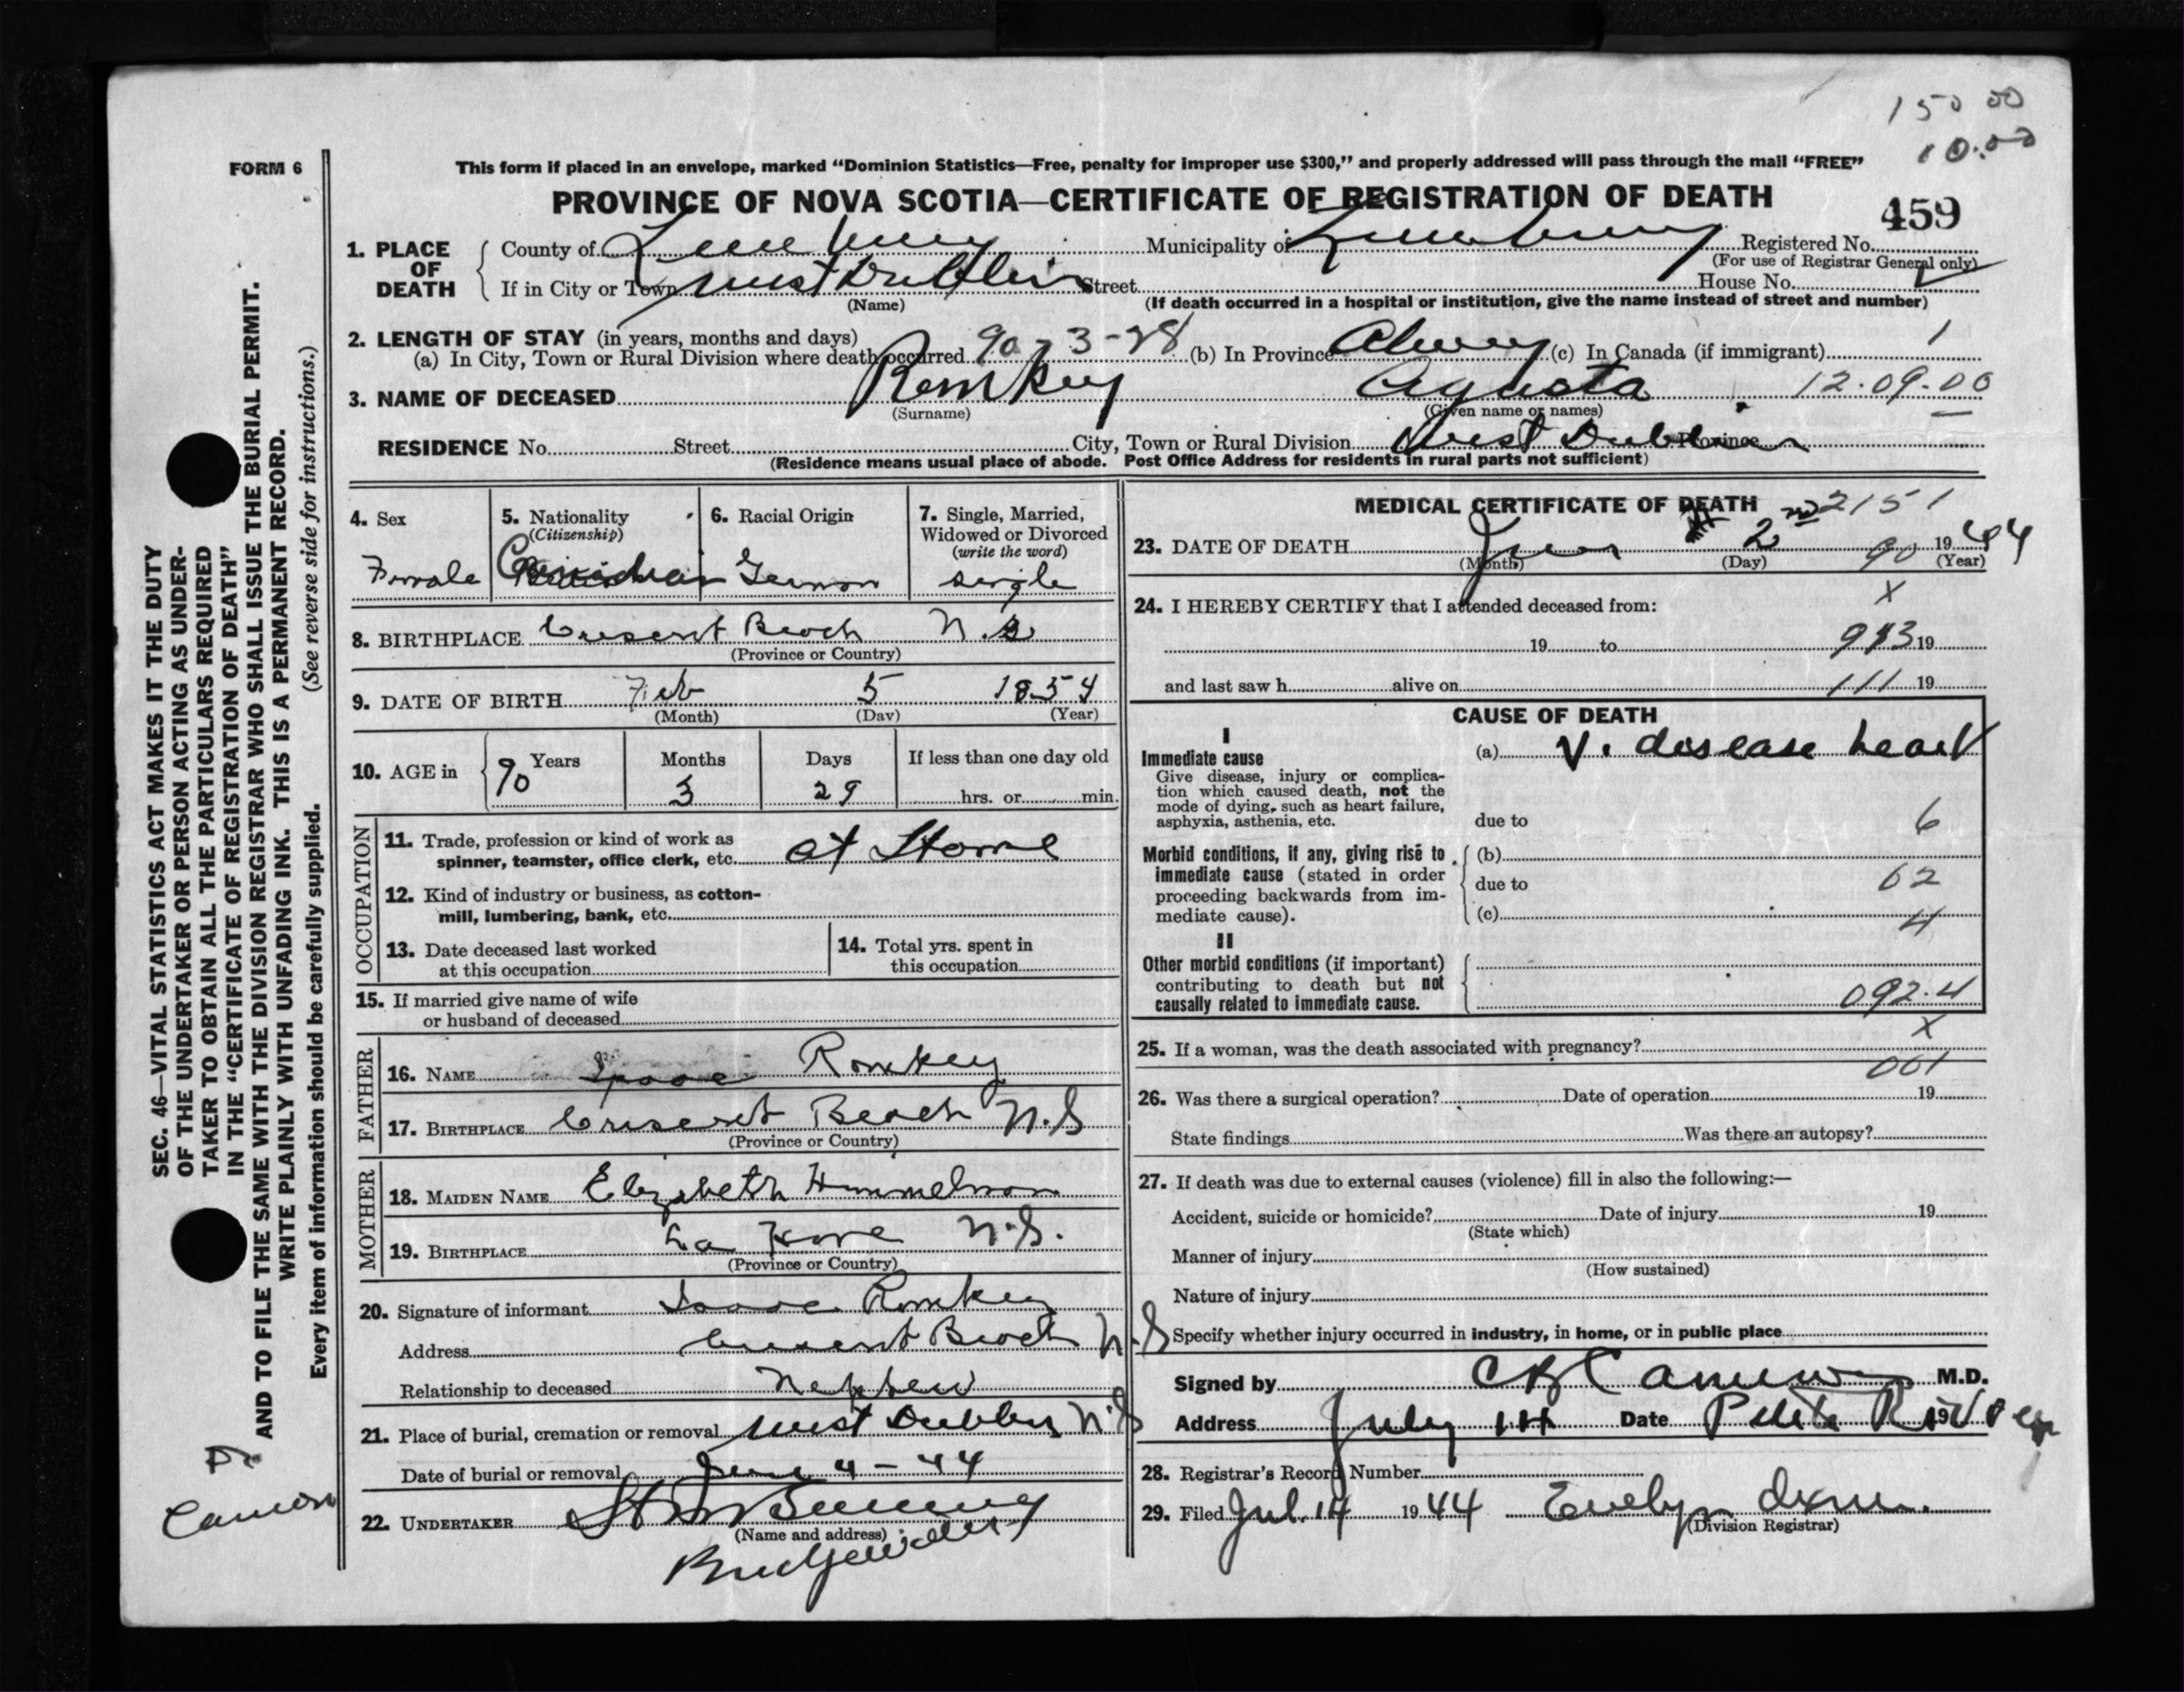 150 00
10.00
FORM 6
This form if placed in an envelope, marked "Dominion Statistics—Free, penalty for improper use $300," and properly addressed will pass through the mail "FREE"
PROVINCE OF NOVA SCOTIA—CERTIFICATE OF REGISTRATION OF DEATH
459
1. PLACE OF DEATH
County of Lunenburg Municipality of Lunenburg Registered No.
(For use of Registrar General only)
If in City or Town West Dublin Street House No.
(Name) (If death occurred in a hospital or institution, give the name instead of street and number)
2. LENGTH OF STAY (in years, months and days)
(a) In City, Town or Rural Division where death occurred 90-3-28 (b) In Province Always (c) In Canada (if immigrant) 1
3. NAME OF DECEASED Romkey Agusta 12.09.00
(Surname) (Given name or names)
RESIDENCE No. Street City, Town or Rural Division West Dublin Province
(Residence means usual place of abode. Post Office Address for residents in rural parts not sufficient)
4. Sex
Female
5. Nationality
(Citizenship)
Canadian
6. Racial Origin
German
7. Single, Married,
Widowed or Divorced
(write the word)
single
8. BIRTHPLACE Cresent Beach N.S
(Province or Country)
9. DATE OF BIRTH Feb 5 1854
(Month) (Day) (Year)
10. AGE in
90 Years
Months 3
Days 29
If less than one day old
hrs. or min.
OCCUPATION
11. Trade, profession or kind of work as
spinner, teamster, office clerk, etc. at Home
12. Kind of industry or business, as cotton-
mill, lumbering, bank, etc.
13. Date deceased last worked
at this occupation
14. Total yrs. spent in
this occupation
15. If married give name of wife
or husband of deceased
FATHER
16. NAME Isaac Romkey
17. BIRTHPLACE Cresent Beach N.S
(Province or Country)
MOTHER
18. MAIDEN NAME Elizabeth Himmelman
19. BIRTHPLACE La Have N.S.
(Province or Country)
20. Signature of informant Isaac Romkey
Address Cresent Beach N.S
Relationship to deceased Nephew
21. Place of burial, cremation or removal West Dublin N.S
Date of burial or removal June 4-44
22. UNDERTAKER
(Name and address)
Bridgewater
MEDICAL CERTIFICATE OF DEATH 2151
23. DATE OF DEATH June 2nd 90 1944
(Month) (Day) (Year)
24. I HEREBY CERTIFY that I attended deceased from: X
19 to 993 19
and last saw h alive on 111 19
CAUSE OF DEATH
I
Immediate cause
Give disease, injury or complica-
tion which caused death, not the
mode of dying, such as heart failure,
asphyxia, asthenia, etc.
(a) V. disease heart
due to 6
Morbid conditions, if any, giving rise to
immediate cause (stated in order
proceeding backwards from im-
mediate cause).
(b)
due to 62
(c) 4
II
Other morbid conditions (if important)
contributing to death but not
causally related to immediate cause.
092.4
X
25. If a woman, was the death associated with pregnancy?
001
26. Was there a surgical operation? Date of operation 19
State findings Was there an autopsy?
27. If death was due to external causes (violence) fill in also the following:—
Accident, suicide or homicide? Date of injury 19
(State which)
Manner of injury
(How sustained)
Nature of injury
Specify whether injury occurred in industry, in home, or in public place
Signed by M.D.
Address July 14 Date Petite Riviere 19
28. Registrar's Record Number
29. Filed Jul. 14 1944 Evelyn
(Division Registrar)
SEC. 46—VITAL STATISTICS ACT MAKES IT THE DUTY
OF THE UNDERTAKER OR PERSON ACTING AS UNDER-
TAKER TO OBTAIN ALL THE PARTICULARS REQUIRED
IN THE "CERTIFICATE OF REGISTRATION OF DEATH"
AND TO FILE THE SAME WITH THE DIVISION REGISTRAR WHO SHALL ISSUE THE BURIAL PERMIT.
WRITE PLAINLY WITH UNFADING INK. THIS IS A PERMANENT RECORD.
Every item of information should be carefully supplied. (See reverse side for instructions.)
Dr